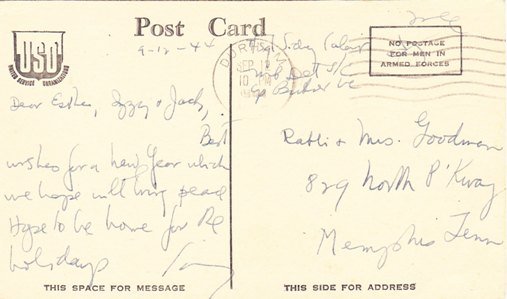 Post Card
USO
UNITED SERVICE ORGANIZATIONS
9-12-44
Free
NO POSTAGE
FOR MEN IN
ARMED FORCES
SEP 12
10
Dear Esther, Izzy & Jack,
Best
wishes for a new Year which
we hope will bring peace
Hope to be home for the
holidays
Rabbi & Mrs. Goodman
829 North P'Kway
Memphis Tenn
THIS SPACE FOR MESSAGE
THIS SIDE FOR ADDRESS